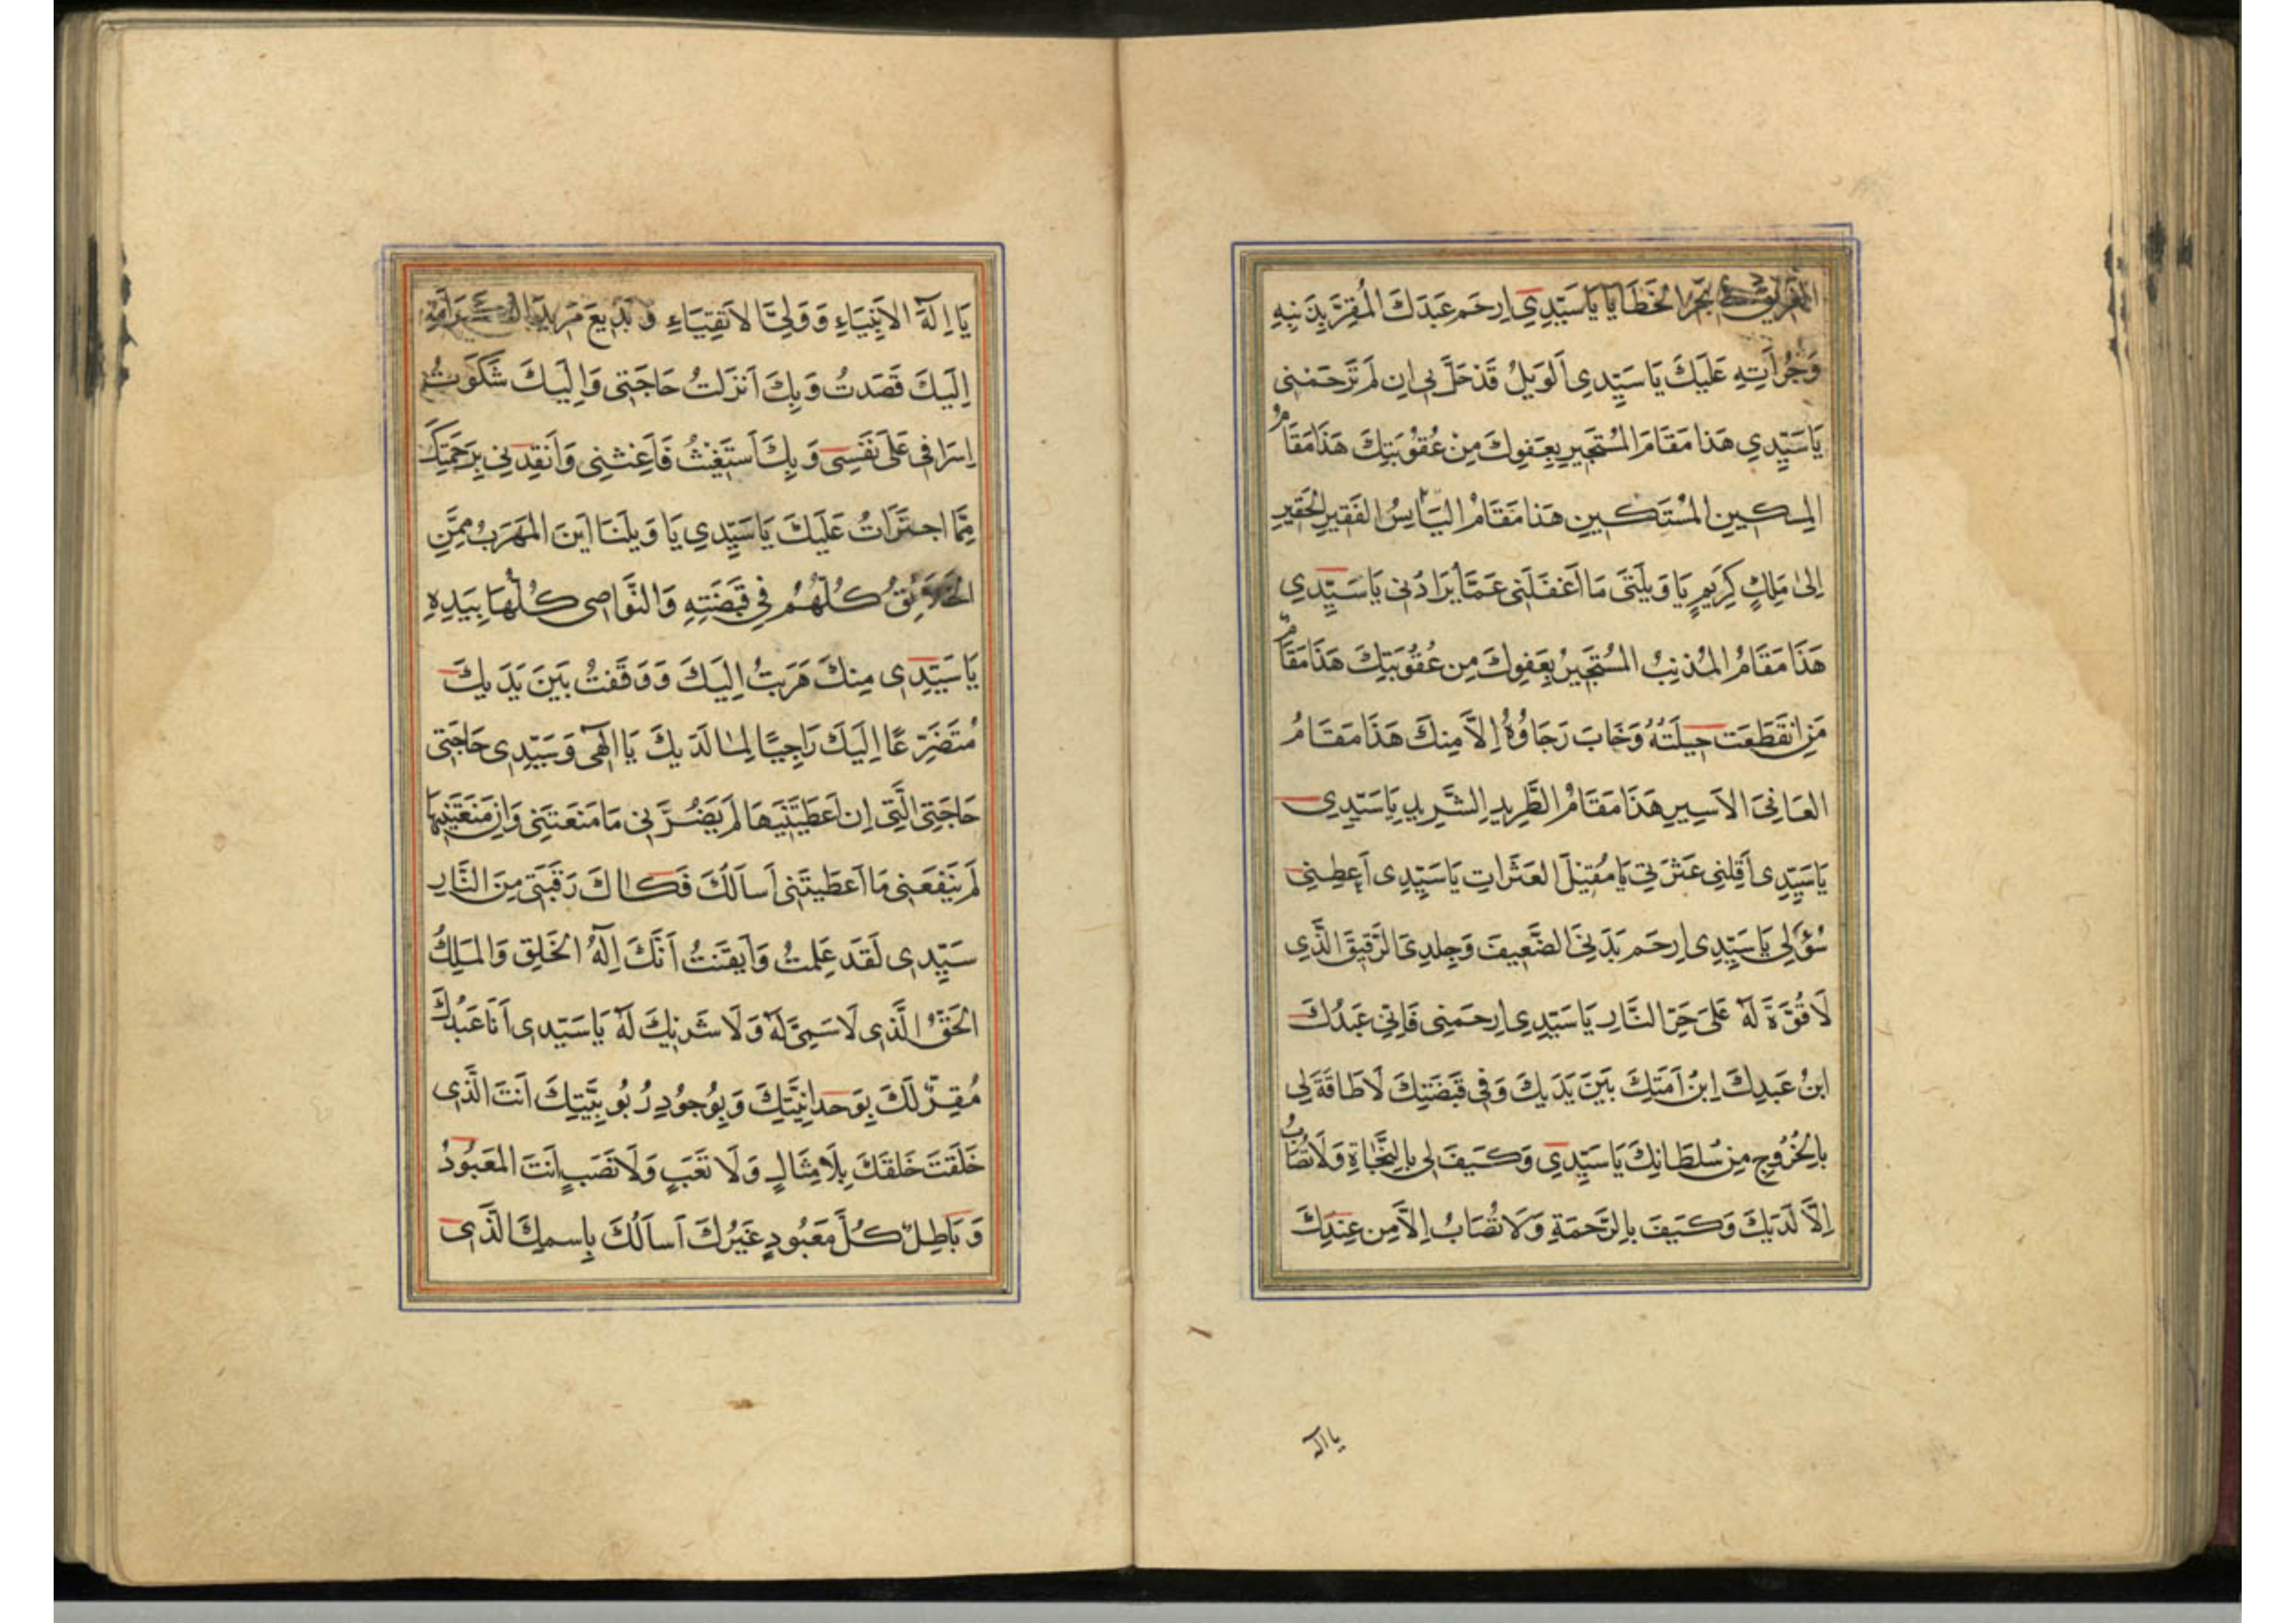 الغريق في بحر الخطايا يا سَيِّدِي اِرحَم عَبدَكَ المُقِرَّ بِذَنبِهِ
وَجُرأَتِهِ عَلَيكَ يَا سَيِّدِى اَلوَيلُ قَدْ حَلَّ بِى اِن لَم تَرحَمْنِى
يَا سَيِّدِي هَذَا مَقَامُ المُستَجِيرِ بِعَفوِكَ مِنْ عُقُوْبَتِكَ هَذَا مَقَامُ
المِسكِينِ المُسْتَكِينِ هَذَا مَقَامُ البَائِسُ الفَقِيرِ الحَقِيرِ
اِلىٰ مَلِكٍ كَرِيمٍ يَا وَيلَتىَ مَا اَغفَلَنِى عَمَّا يُرَادُنِى يَا سَيِّدِي
هَذَا مَقَامُ المُذنِبُ المُستَجِيرُ بِعَفوِكَ مِن عُقُوبَتِكَ هَذَا مَقَامُ
مَنِ انقَطَعَت حِيلَتُهُ وَخَابَ رَجَاؤُهُ اِلاَّ مِنكَ هَذَا مَقَامُ
العَانِىَ الاَسِيرِ هَذَا مَقَامُ الطَّرِيدِ الشَّرِيدِ يَا سَيِّدِى
يَا سَيِّدِى اَقِلنِى عَثرَتِي يَا مُقِيْلَ العَثَرَاتِ يَا سَيِّدِى اَعطِنِى
سُؤلِي يَا سَيِّدِى اِرحَم بَدَنِىَ الضَّعِيفَ وَجِلدِىَ الرَّقِيقَ الَّذِى
لَا قُوَّةَ لَهُ عَلىَ حَرِّ النَّارِ يَا سَيِّدِى اِرحَمنِى فَاِنِّى عَبدُكَ
ابنُ عَبدِكَ اِبنُ اَمَتِكَ بَينَ يَدَيكَ وَفِى قَبضَتِكَ لَا طَاقَةَ لِى
بِالخُرُوجِ مِنْ سُلطَانِكَ يَا سَيِّدِى وَكَيفَ لِى بِالنَّجَاةِ وَلَا تُصَابُ
اِلاَّ لَدَيكَ وَكَيفَ بِالرَّحمَةِ وَلَا تُصَابُ اِلاَّ مِن عِندِكَ
يا اله
يَا اِلَهَ الاَنبِيَاءِ وَوَلِىَّ الاَتقِيَاءِ وَ بَدِيعَ مَزِيدَ الكَرَامَةِ
اِلَيكَ قَصَدتُ وَبِكَ اَنزَلتُ حَاجَتِى وَاِلَيكَ شَكَوتُ
اِسرَافِى عَلَى نَفْسِى وَ بِكَ اَستَغِيثُ فَاَغِثنِى وَاَنقِذنِى بِرَحمَتِكَ
مِمَّا اجتَرَأتُ عَلَيكَ يَا سَيِّدِي يَا وَيلَنَا اَينَ المَهرَبُ مِمَّنِ
الخَلَائِقُ كُلُّهُم فِي قَبضَتِهِ وَالنَّوَاصِى كُلُّهَا بِيَدِهِ
يَا سَيِّدِى مِنكَ هَرَبتُ اِلَيكَ وَوَقَفتُ بَينَ يَدَيكَ
مُتَضَرِّعًا اِلَيكَ رَاجِيًا لِمَا لَدَيكَ يَا اِلَهِى وَسَيِّدِى حَاجَتِى
حَاجَتِى الَّتِى اِن اَعطَيتَنِيهَا لَم يَضُرَّنِى مَا مَنَعتَنِى وَاِن مَنَعتَنِيهَا
لَم يَنفَعنِى مَا اَعطَيتَنِى اَساَلُكَ فَكَاكَ رَقَبَتِى مِنَ النَّارِ
سَيِّدِى لَقَد عَلِمتُ وَاَيقَنتُ اَنَّكَ اِلَهُ الخَلقِ وَالمَلِكُ
الحَقُّ الَّذِى لَا سَمِىَّ لَهُ وَلَا شَرِيكَ لَهُ يَا سَيِّدِى اَنَا عَبدُكَ
مُقِرٌّ لَكَ بِوَحدَانِيَّتِكَ وَبِوُجُودِ رُبُوبِيَّتِكَ اَنتَ الَّذِى
خَلَقتَ خَلقَكَ بِلَا مِثَالٍ وَلَا تَعَبٍ وَلَا نَصَبٍ اَنتَ المَعبُودُ
وَ بَاطِلٌ كُلُّ مَعبُودٍ غَيرُكَ اَساَلُكَ بِاسمِكَ الَّذِى